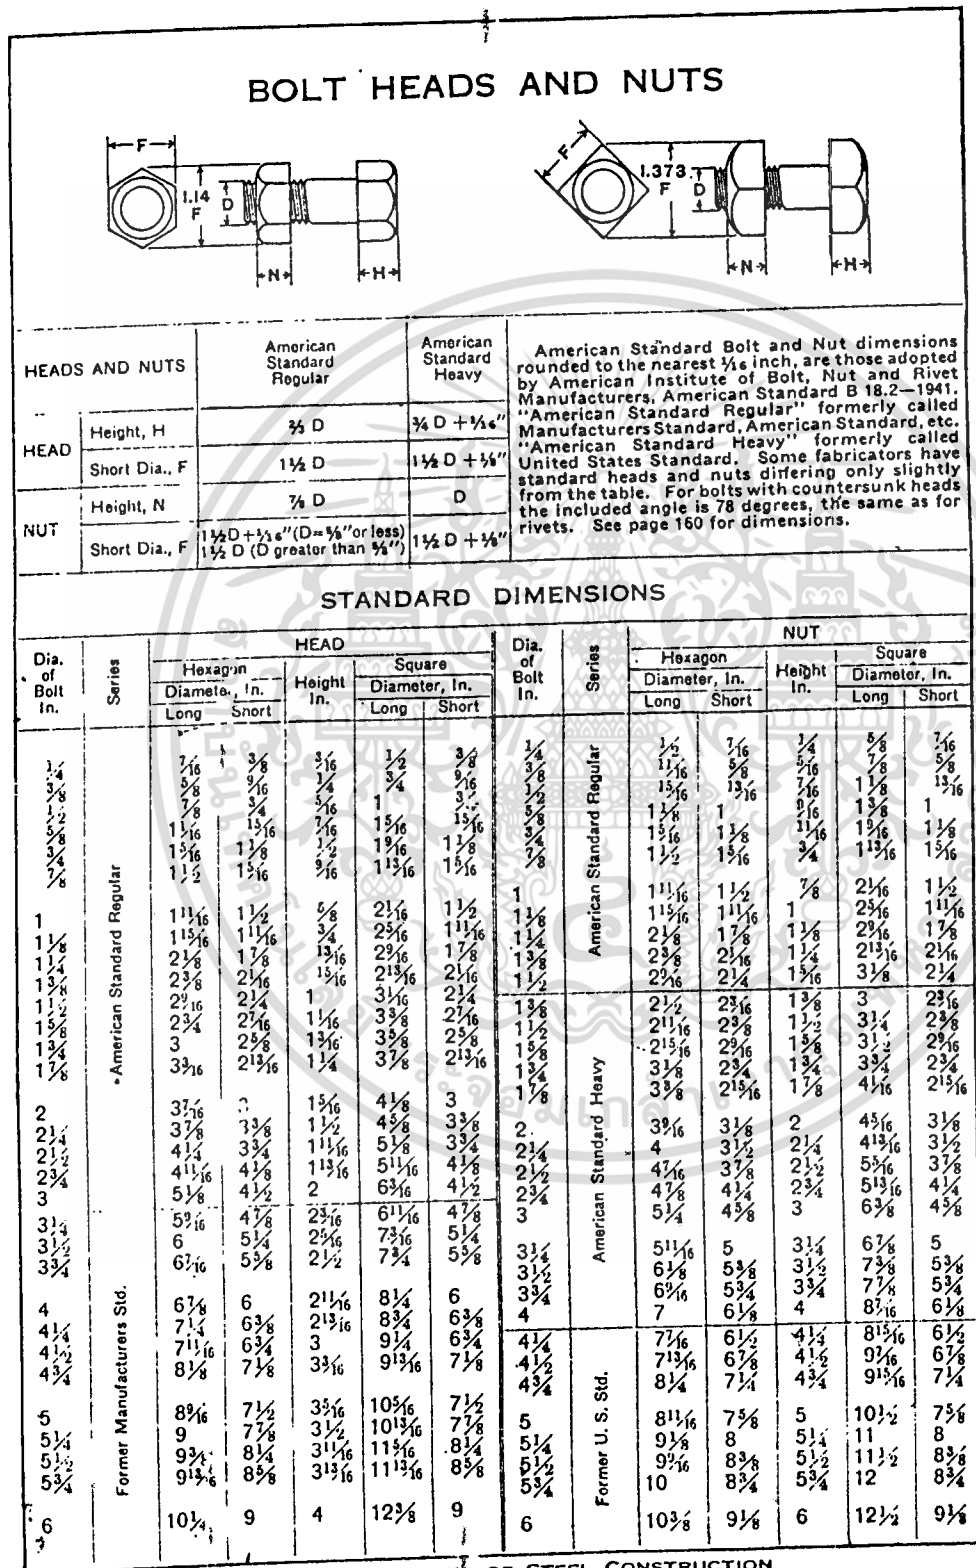 BOLT HEADS AND NUTS
F 1.14 F D N H
F 1.373 F D N H
HEADS AND NUTS | American Standard Regular | American Standard Heavy
HEAD | Height, H | ⅔ D | ¾ D + 1/16"
Short Dia., F | 1½ D | 1½ D + ⅛"
NUT | Height, N | ⅞ D | D
Short Dia., F | 1½ D + 1/16" (D = ⅝" or less) 1½ D (D greater than ⅝") | 1½ D + ⅛"
American Standard Bolt and Nut dimensions
rounded to the nearest 1/16 inch, are those adopted
by American Institute of Bolt, Nut and Rivet
Manufacturers, American Standard B 18.2—1941.
"American Standard Regular" formerly called
Manufacturers Standard, American Standard, etc.
"American Standard Heavy" formerly called
United States Standard. Some fabricators have
standard heads and nuts differing only slightly
from the table. For bolts with countersunk heads
the included angle is 78 degrees, the same as for
rivets. See page 160 for dimensions.
STANDARD DIMENSIONS
Dia. of Bolt In. | Series | HEAD | Hexagon Diameter, In. Long Short | Height In. | Square Diameter, In. Long Short
American Standard Regular
1/4 | 7/16 | 3/8 | 3/16 | 1/2 | 3/8
3/8 | 5/8 | 9/16 | 1/4 | 3/4 | 9/16
1/2 | 7/8 | 3/4 | 5/16 | 1
5/8 | 1 1/16 | 15/16 | 7/16 | 1 5/16 | 15/16
3/4 | 1 5/16 | 1 1/8 | 1/2 | 1 9/16 | 1 1/8
7/8 | 1 1/2 | 1 5/16 | 9/16 | 1 13/16 | 1 5/16
1 | 1 11/16 | 1 1/2 | 5/8 | 2 1/16 | 1 1/2
1 1/8 | 1 15/16 | 1 11/16 | 3/4 | 2 5/16 | 1 11/16
1 1/4 | 2 1/8 | 1 7/8 | 13/16 | 2 9/16 | 1 7/8
1 3/8 | 2 3/8 | 2 1/16 | 15/16 | 2 13/16 | 2 1/16
1 1/2 | 2 9/16 | 2 1/4 | 1 | 3 1/16 | 2 1/4
1 5/8 | 2 3/4 | 2 7/16 | 1 1/16 | 3 3/8 | 2 7/16
1 3/4 | 3 | 2 5/8 | 1 3/16 | 3 5/8 | 2 5/8
1 7/8 | 3 3/16 | 2 13/16 | 1 1/4 | 3 7/8 | 2 13/16
2 | 3 7/16 | 3 | 1 5/16 | 4 1/8 | 3
2 1/4 | 3 7/8 | 3 3/8 | 1 1/2 | 4 5/8 | 3 3/8
2 1/2 | 4 1/4 | 3 3/4 | 1 11/16 | 5 1/8 | 3 3/4
2 3/4 | 4 11/16 | 4 1/8 | 1 13/16 | 5 11/16 | 4 1/8
3 | 5 1/8 | 4 1/2 | 2 | 6 3/16 | 4 1/2
Former Manufacturers Std.
3 1/4 | 5 9/16 | 4 7/8 | 2 3/16 | 6 11/16 | 4 7/8
3 1/2 | 6 | 5 1/4 | 2 5/16 | 7 3/16 | 5 1/4
3 3/4 | 6 7/16 | 5 5/8 | 2 1/2 | 7 3/4 | 5 5/8
4 | 6 7/8 | 6 | 2 11/16 | 8 1/4 | 6
4 1/4 | 7 1/4 | 6 3/8 | 2 13/16 | 8 3/4 | 6 3/8
4 1/2 | 7 11/16 | 6 3/4 | 3 | 9 1/4 | 6 3/4
4 3/4 | 8 1/8 | 7 1/8 | 3 3/16 | 9 13/16 | 7 1/8
5 | 8 9/16 | 7 1/2 | 3 5/16 | 10 5/16 | 7 1/2
5 1/4 | 9 | 7 7/8 | 3 1/2 | 10 13/16 | 7 7/8
5 1/2 | 9 3/8 | 8 1/4 | 3 11/16 | 11 5/16 | 8 1/4
5 3/4 | 9 13/16 | 8 5/8 | 3 13/16 | 11 13/16 | 8 5/8
6 | 10 1/4 | 9 | 4 | 12 3/8 | 9
Dia. of Bolt In. | Series | NUT | Hexagon Diameter, In. Long Short | Height In. | Square Diameter, In. Long Short
American Standard Regular
1/4 | 1/2 | 7/16 | 1/4 | 5/8 | 7/16
3/8 | 11/16 | 5/8 | 5/16 | 7/8 | 5/8
1/2 | 15/16 | 13/16 | 7/16 | 1 1/8 | 13/16
5/8 | 1 1/8 | 1 | 9/16 | 1 3/8 | 1
3/4 | 1 5/16 | 1 1/8 | 11/16 | 1 9/16 | 1 1/8
7/8 | 1 1/2 | 1 5/16 | 3/4 | 1 13/16 | 1 5/16
1 | 1 11/16 | 1 1/2 | 7/8 | 2 1/16 | 1 1/2
1 1/8 | 1 15/16 | 1 11/16 | 1 | 2 5/16 | 1 11/16
1 1/4 | 2 1/8 | 1 7/8 | 1 1/8 | 2 9/16 | 1 7/8
1 3/8 | 2 3/8 | 2 1/16 | 1 1/4 | 2 13/16 | 2 1/16
1 1/2 | 2 9/16 | 2 1/4 | 1 5/16 | 3 1/8 | 2 1/4
American Standard Heavy
1 3/8 | 2 1/2 | 2 3/16 | 1 3/8 | 3 | 2 3/16
1 1/2 | 2 11/16 | 2 3/8 | 1 1/2 | 3 1/4 | 2 3/8
1 5/8 | 2 15/16 | 2 9/16 | 1 5/8 | 3 1/2 | 2 9/16
1 3/4 | 3 1/8 | 2 3/4 | 1 3/4 | 3 3/4 | 2 3/4
1 7/8 | 3 3/8 | 2 15/16 | 1 7/8 | 4 1/16 | 2 15/16
2 | 3 9/16 | 3 1/8 | 2 | 4 5/16 | 3 1/8
2 1/4 | 4 | 3 1/2 | 2 1/4 | 4 13/16 | 3 1/2
2 1/2 | 4 7/16 | 3 7/8 | 2 1/2 | 5 5/16 | 3 7/8
2 3/4 | 4 7/8 | 4 1/4 | 2 3/4 | 5 13/16 | 4 1/4
3 | 5 1/4 | 4 5/8 | 3 | 6 3/8 | 4 5/8
3 1/4 | 5 11/16 | 5 | 3 1/4 | 6 7/8 | 5
3 1/2 | 6 1/8 | 5 3/8 | 3 1/2 | 7 3/8 | 5 3/8
3 3/4 | 6 9/16 | 5 3/4 | 3 3/4 | 7 7/8 | 5 3/4
4 | 7 | 6 1/8 | 4 | 8 7/16 | 6 1/8
Former U. S. Std.
4 1/4 | 7 7/16 | 6 1/2 | 4 1/4 | 8 15/16 | 6 1/2
4 1/2 | 7 13/16 | 6 7/8 | 4 1/2 | 9 7/16 | 6 7/8
4 3/4 | 8 1/4 | 7 1/4 | 4 3/4 | 9 15/16 | 7 1/4
5 | 8 11/16 | 7 5/8 | 5 | 10 1/2 | 7 5/8
5 1/4 | 9 1/8 | 8 | 5 1/4 | 11 | 8
5 1/2 | 9 9/16 | 8 3/8 | 5 1/2 | 11 1/2 | 8 3/8
5 3/4 | 10 | 8 3/4 | 5 3/4 | 12 | 8 3/4
6 | 10 3/8 | 9 1/8 | 6 | 12 1/2 | 9 1/8
OF STEEL CONSTRUCTION